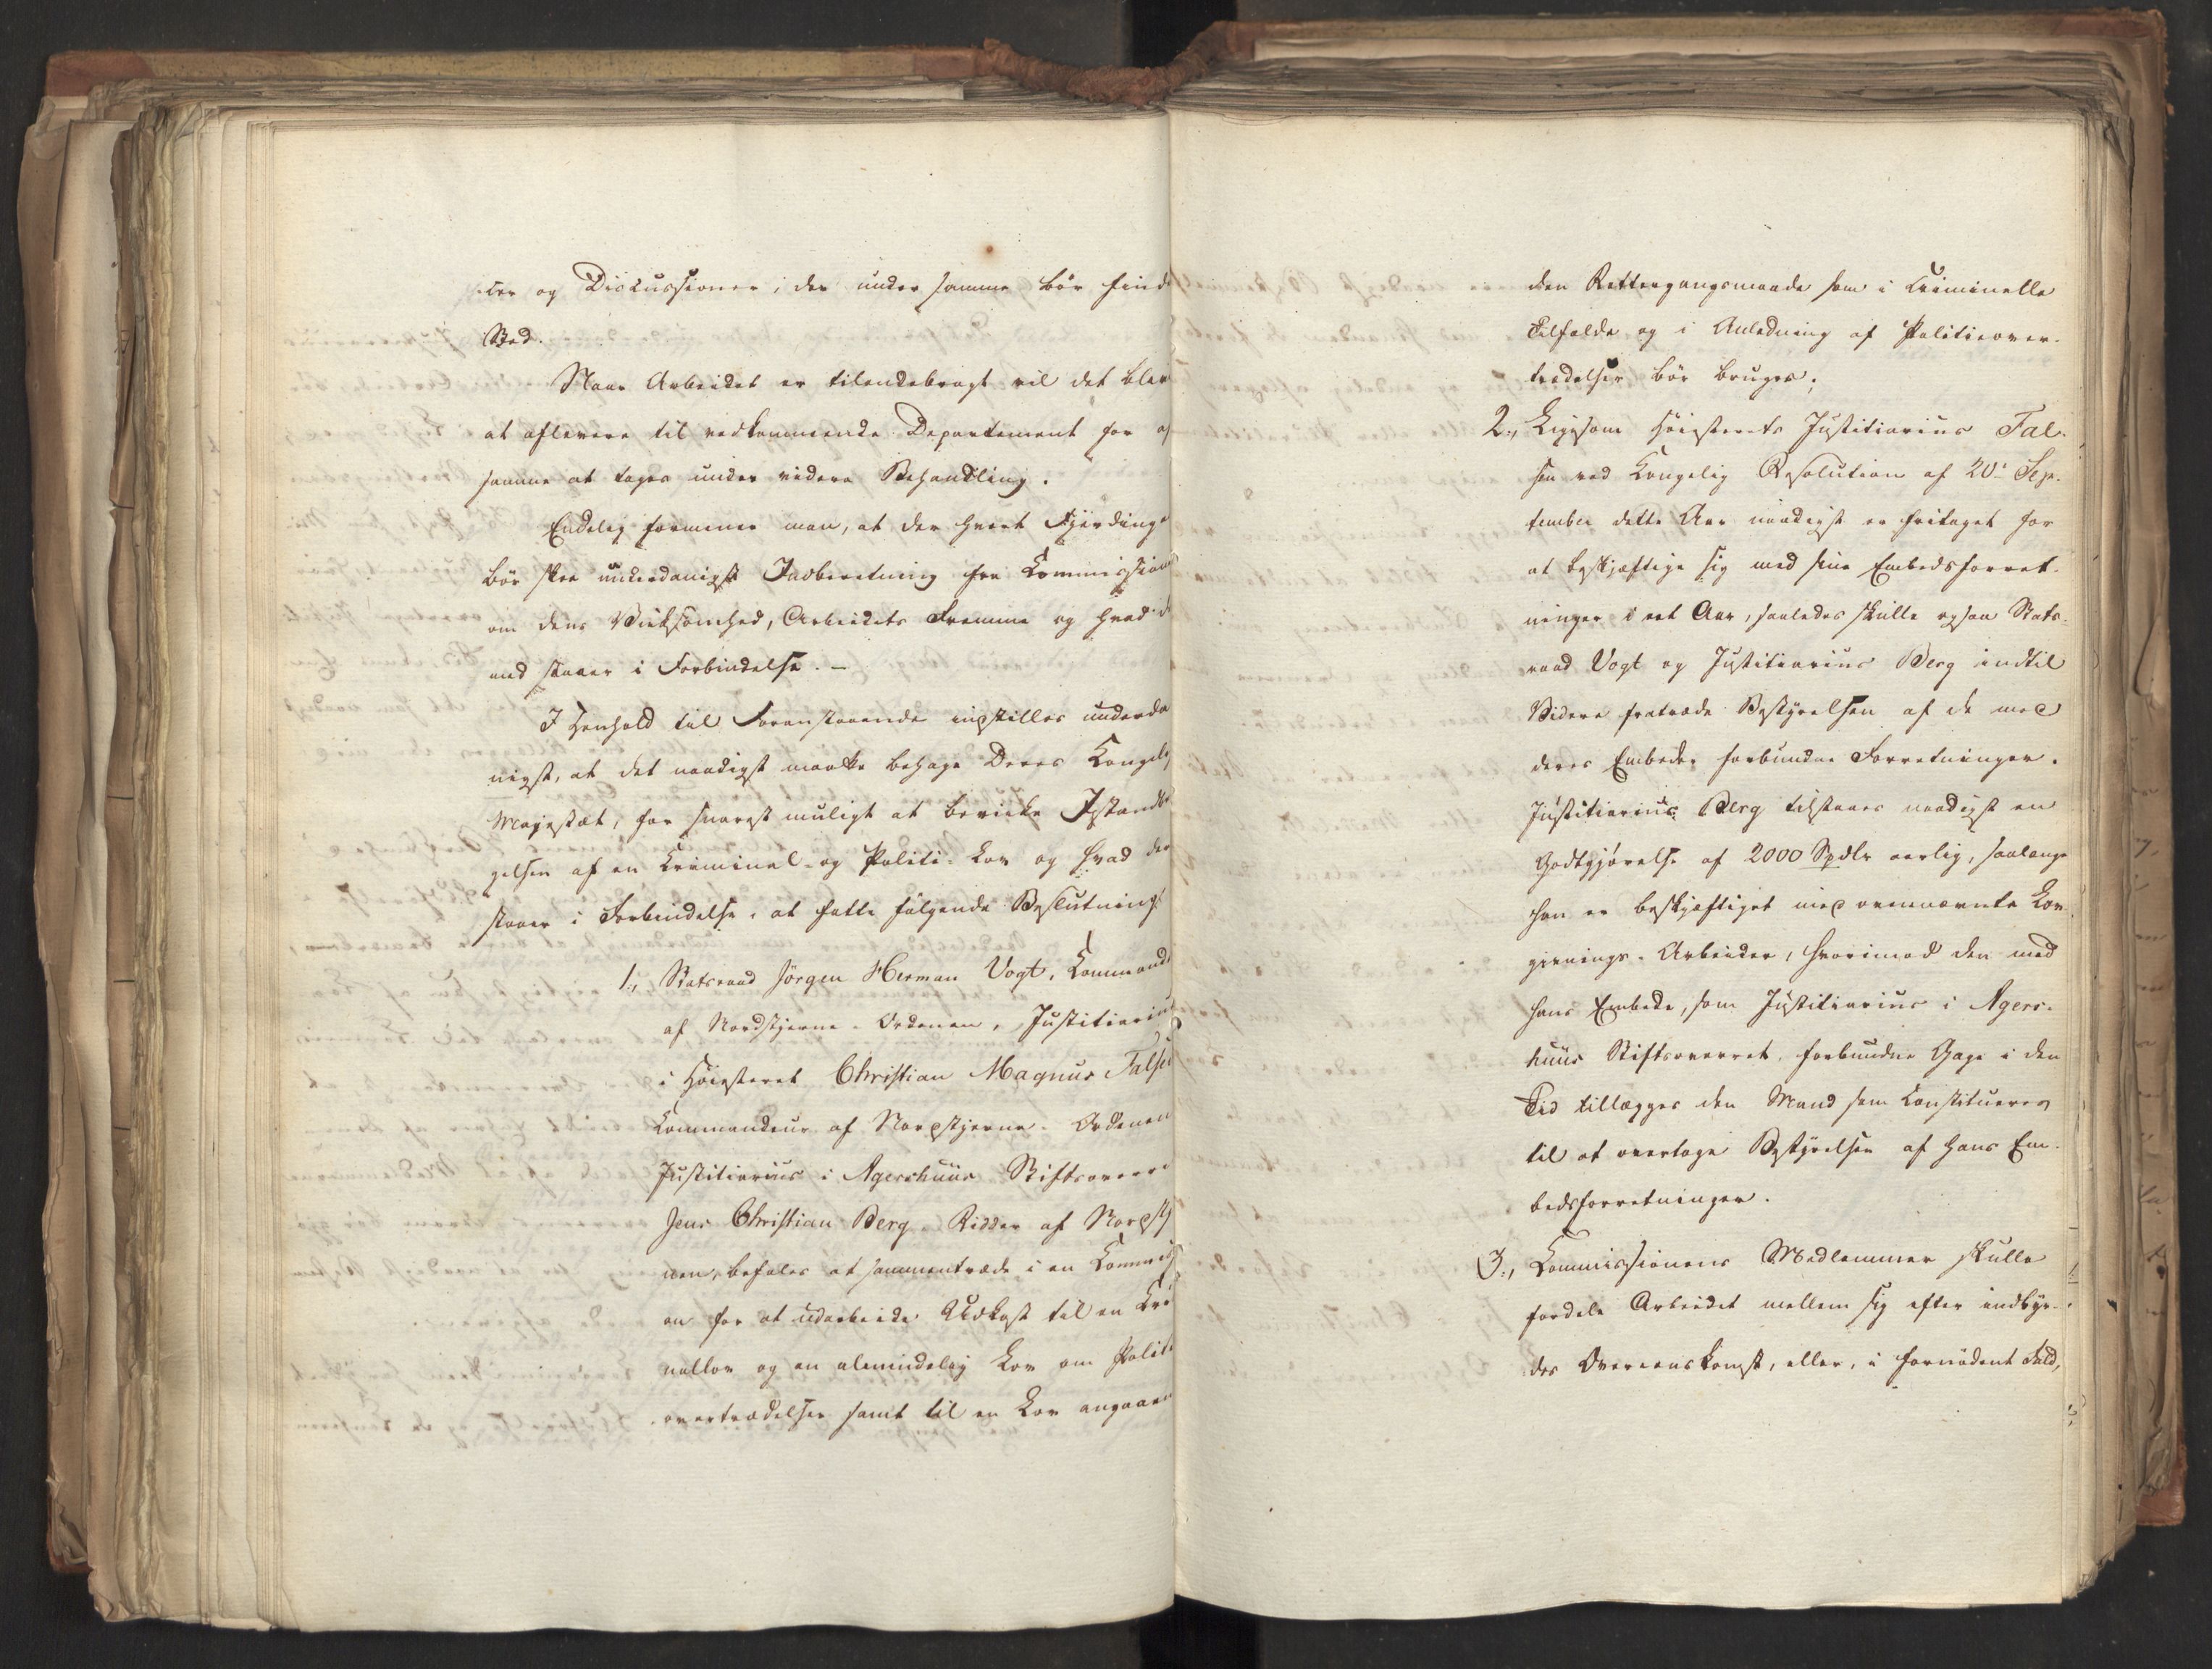 -ter og Discussioner, der under samme bör finde
Sted.
Naar Arbeidet er tilendebragt vil det blive
at aflevere til vedkommende Departement for af
samme at tages under videre Behandling.
Endelig formener man, at der hvert Fjerdinga
bör skee underdanigst Indberetning fra Commission
om dens Virksomhed, Arbeidets Fremme og hvad d
med staaer i Forbindelse. –
I Henhold til Foranstaaende indstilles underda
nigst, at det naadigst maatte behage Deres Kongelig
Majestæt, for snarest muligt at bevirke Istandbr
gelsen af en Criminal- og Politi-Lov og hvad der
staaer i Forbindelse, at fatte fölgende Beslutning:
1., Statsraad Jörgen Herman Vogt, Commande
af Nordstjerne-Ordenen, Justitiarius
i Höiesteret Christian Magnus Falsen
Commandeur af Nordstjerne-Ordenen
Justitiarius i Agershuus Stiftsoverr
Jens Christian Berg, Ridder af Nordstj
nen, befales at sammentræde i en Commis
on for at udarbeide Udkast til en Cri
nallov og en almindelig Lov om Politi
overtrædelser samt til en Lov angaaen
den Rettergangsmaade som i Criminelle
Tilfælde og i Anledning af Politieover-
trædelser bör bruges;
2., Ligesom Höiesterets Justitiarius Fal-
sen ved Kongelig Resolution af 20de Sep-
tember dette Aar naadigst er fritaget for
at beskjæftige sig med sine Embedsforret-
ninger i eet Aar, saaledes skulle ogsaa Stats-
raad Vogt og Justitiarius Berg indtil
Videre fratræde Bestyrelsen af de med
deres Embeder forbundne Forretninger.
Justitiarius Berg tilstaaes naadigst en
Godtgjörelse af 2000 Spdlr aarlig, saalænge
han er beskjæftiget med ovennævnte Lov-
givnings-Arbeider, hvorimod den med
hans Embede, som Justitiarius i Agers-
huus Stiftsoverret, forbundne Gage i den
Tid tillægges den Mand som Constitueres
til at overtage Bestyrelsen af hans Em-
bedsforretninger.
3., Commissionens Medlemmer skulle
fordele Arbeidet mellem sig efter indbyr-
des Overeenskomst, eller, i fornödent Fald,